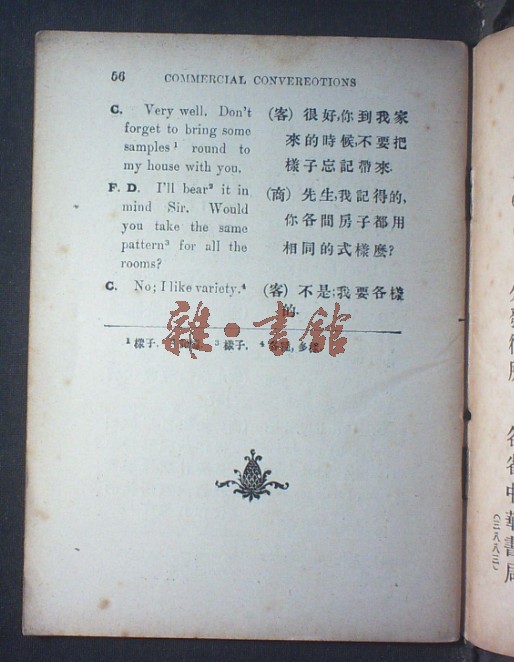 56 COMMERCIAL CONVEREOTIONS
C. Very well. Don't
forget to bring some
samples¹ round to
my house with you.
(客) 很好,你到我家
來的時候,不要把
樣子忘記帶來.
F. D. I'll bear² it in
mind Sir. Would
you take the same
pattern³ for all the
rooms?
(商) 先生,我記得的,
你各間房子都用
相同的式樣麼?
C. No; I like variety.⁴
(客) 不是;我要各樣
的.
雜·書館
¹ 樣子. ³ 樣子. ⁴ 多
各省中華書局
(三八八三)